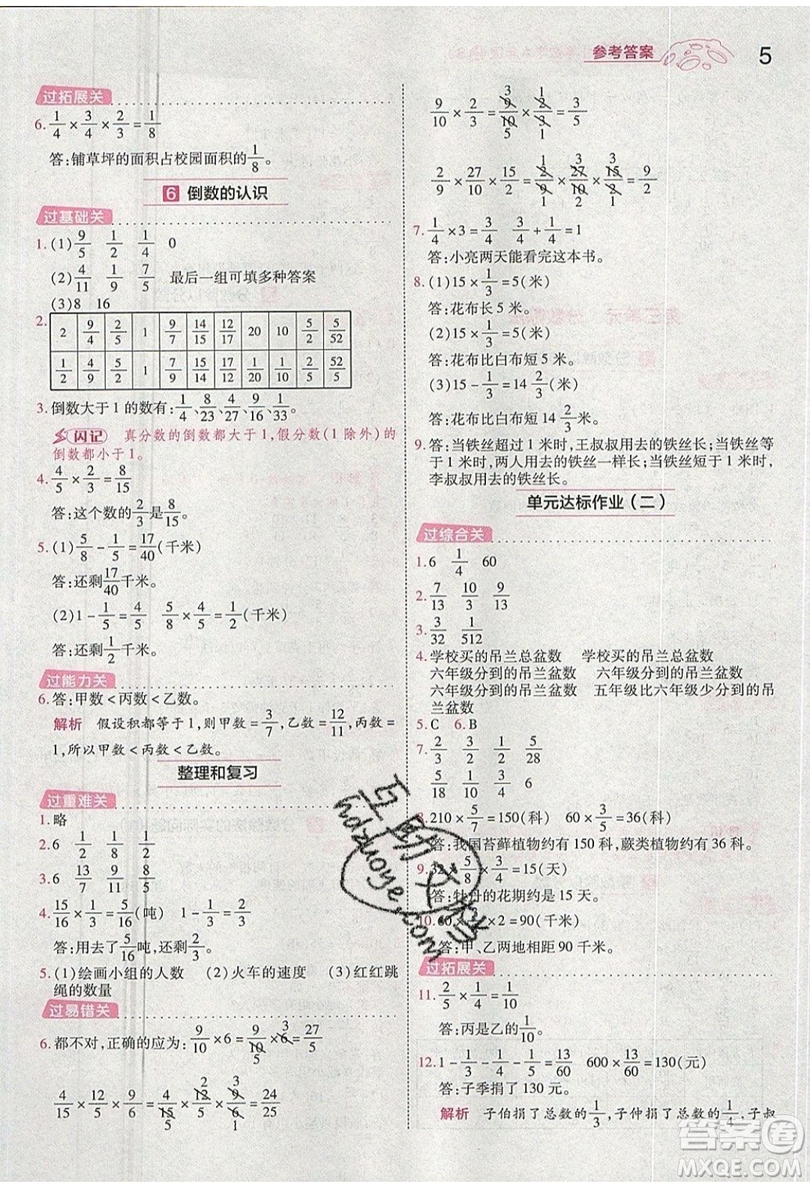 参考答案
5
过拓展关
6. 1/4 × 3/4 × 2/3 = 1/8
答:铺草坪的面积占校园面积的 1/8。
6 倒数的认识
过基础关
1. (1) 9/5 1/2 1/5 0
(2) 4/11 1/9 7/5 最后一组可填多种答案
(3) 8 16
2. 2 9/4 2/11 1 9/7 14/15 17/12 20 10 5/2 5/52
1/2 4/9 11/2 1 7/9 15/14 12/17 1/20 1/10 2/5 52/5
3. 倒数大于 1 的数有: 1/4、3/23、4/9、9/16、7/33。
闪记 真分数的倒数都大于 1,假分数(1 除外)的
倒数都小于 1。
4. 4/5 × 2/3 = 8/15
答:这个数的 2/3 是 8/15。
5. (1) 5/8 - 1/5 = 17/40(千米)
答:还剩 17/40 千米。
(2) 1 - 1/5 = 4/5 5/8 × 4/5 = 1/2(千米)
答:还剩 1/2 千米。
过能力关
6. 答:甲数 < 丙数 < 乙数。
解析 假设积都等于 1,则甲数 = 3/7,乙数 = 12/11,丙数 =
1,所以甲数 < 丙数 < 乙数。
整理和复习
过重难关
1. 略
2. 6 1/8 1/9 1/8
3. 6 13/15 7/11 1/7
4. 15/16 × 1/3 = 5/16(吨) 1 - 1/3 = 2/3
答:用去了 5/16 吨,还剩 2/3。
5. (1)绘画小组的人数 (2)火车的速度 (3)红红跳
绳的数量
过易错关
6. 都不对,正确的应为: 9/10 × 6 = 9/10 × 6 = 27/5
5 3
4/15 × 12/9 × 6 = 4/15 × 12/9 × 6 = 32/15
5 2 2 3
9/10 × 2/3 = 9/10 × 2/3 = 3/5
3 5 1 1
9/10 × 2/3 × 27/10 × 10/9 = 2/9 × 27/10 × 10/9 = 2/3
7. 1/4 × 3 = 3/4 3/4 + 1/4 = 1
答:小亮两天能看完这本书。
8. (1) 15 × 1/3 = 5(米)
答:花布长 5 米。
(2) 15 × 1/3 = 5(米)
答:花布比白布短 5 米。
(3) 15 - 1/3 = 14 2/3(米)
答:花布比白布短 14 2/3 米。
9. 答:当铁丝超过 1 米时,王叔叔用去的铁丝长;当铁丝等
于 1 米时,两人用去的铁丝一样长;当铁丝短于 1 米时,
李叔叔用去的铁丝长。
单元达标作业(二)
过综合关
1. 6 1/4 60
2. 7/13 10/3 9/13
3. 3/32 1/512
4. 学校买的吊兰总盆数 学校买的吊兰总盆数
六年级分到的吊兰盆数 六年级分到的吊兰盆数
六年级分到的吊兰盆数 五年级比六年级少分到的吊
兰盆数
5. C 6. B
7. 2/3 3/2 1/2 5/28
8. 210 × 5/7 = 150(科) 60 × 3/5 = 36(科)
答:我国苔藓植物约有 150 科,蕨类植物约有 36 科。
9. 32 × 5/8 × 3/4 = 15(天)
答:牡丹的花期约是 15 天。
10. 60 × 3/4 × 2 = 90(千米)
答:甲、乙两地相距 90 千米。
过拓展关
11. 2/5 × 1/4 = 1/10
答:丙是乙的 1/10。
12. 1 - 1/3 - 1/4 - 1/5 = 13/60 600 × 13/60 = 130(元)
答:子季捐了 130 元。
解析 子伯捐了总数的 1/3,子仲捐了总数的 1/4,子叔
互助文档
hdzuoye.com
答案圈
MXQE.COM